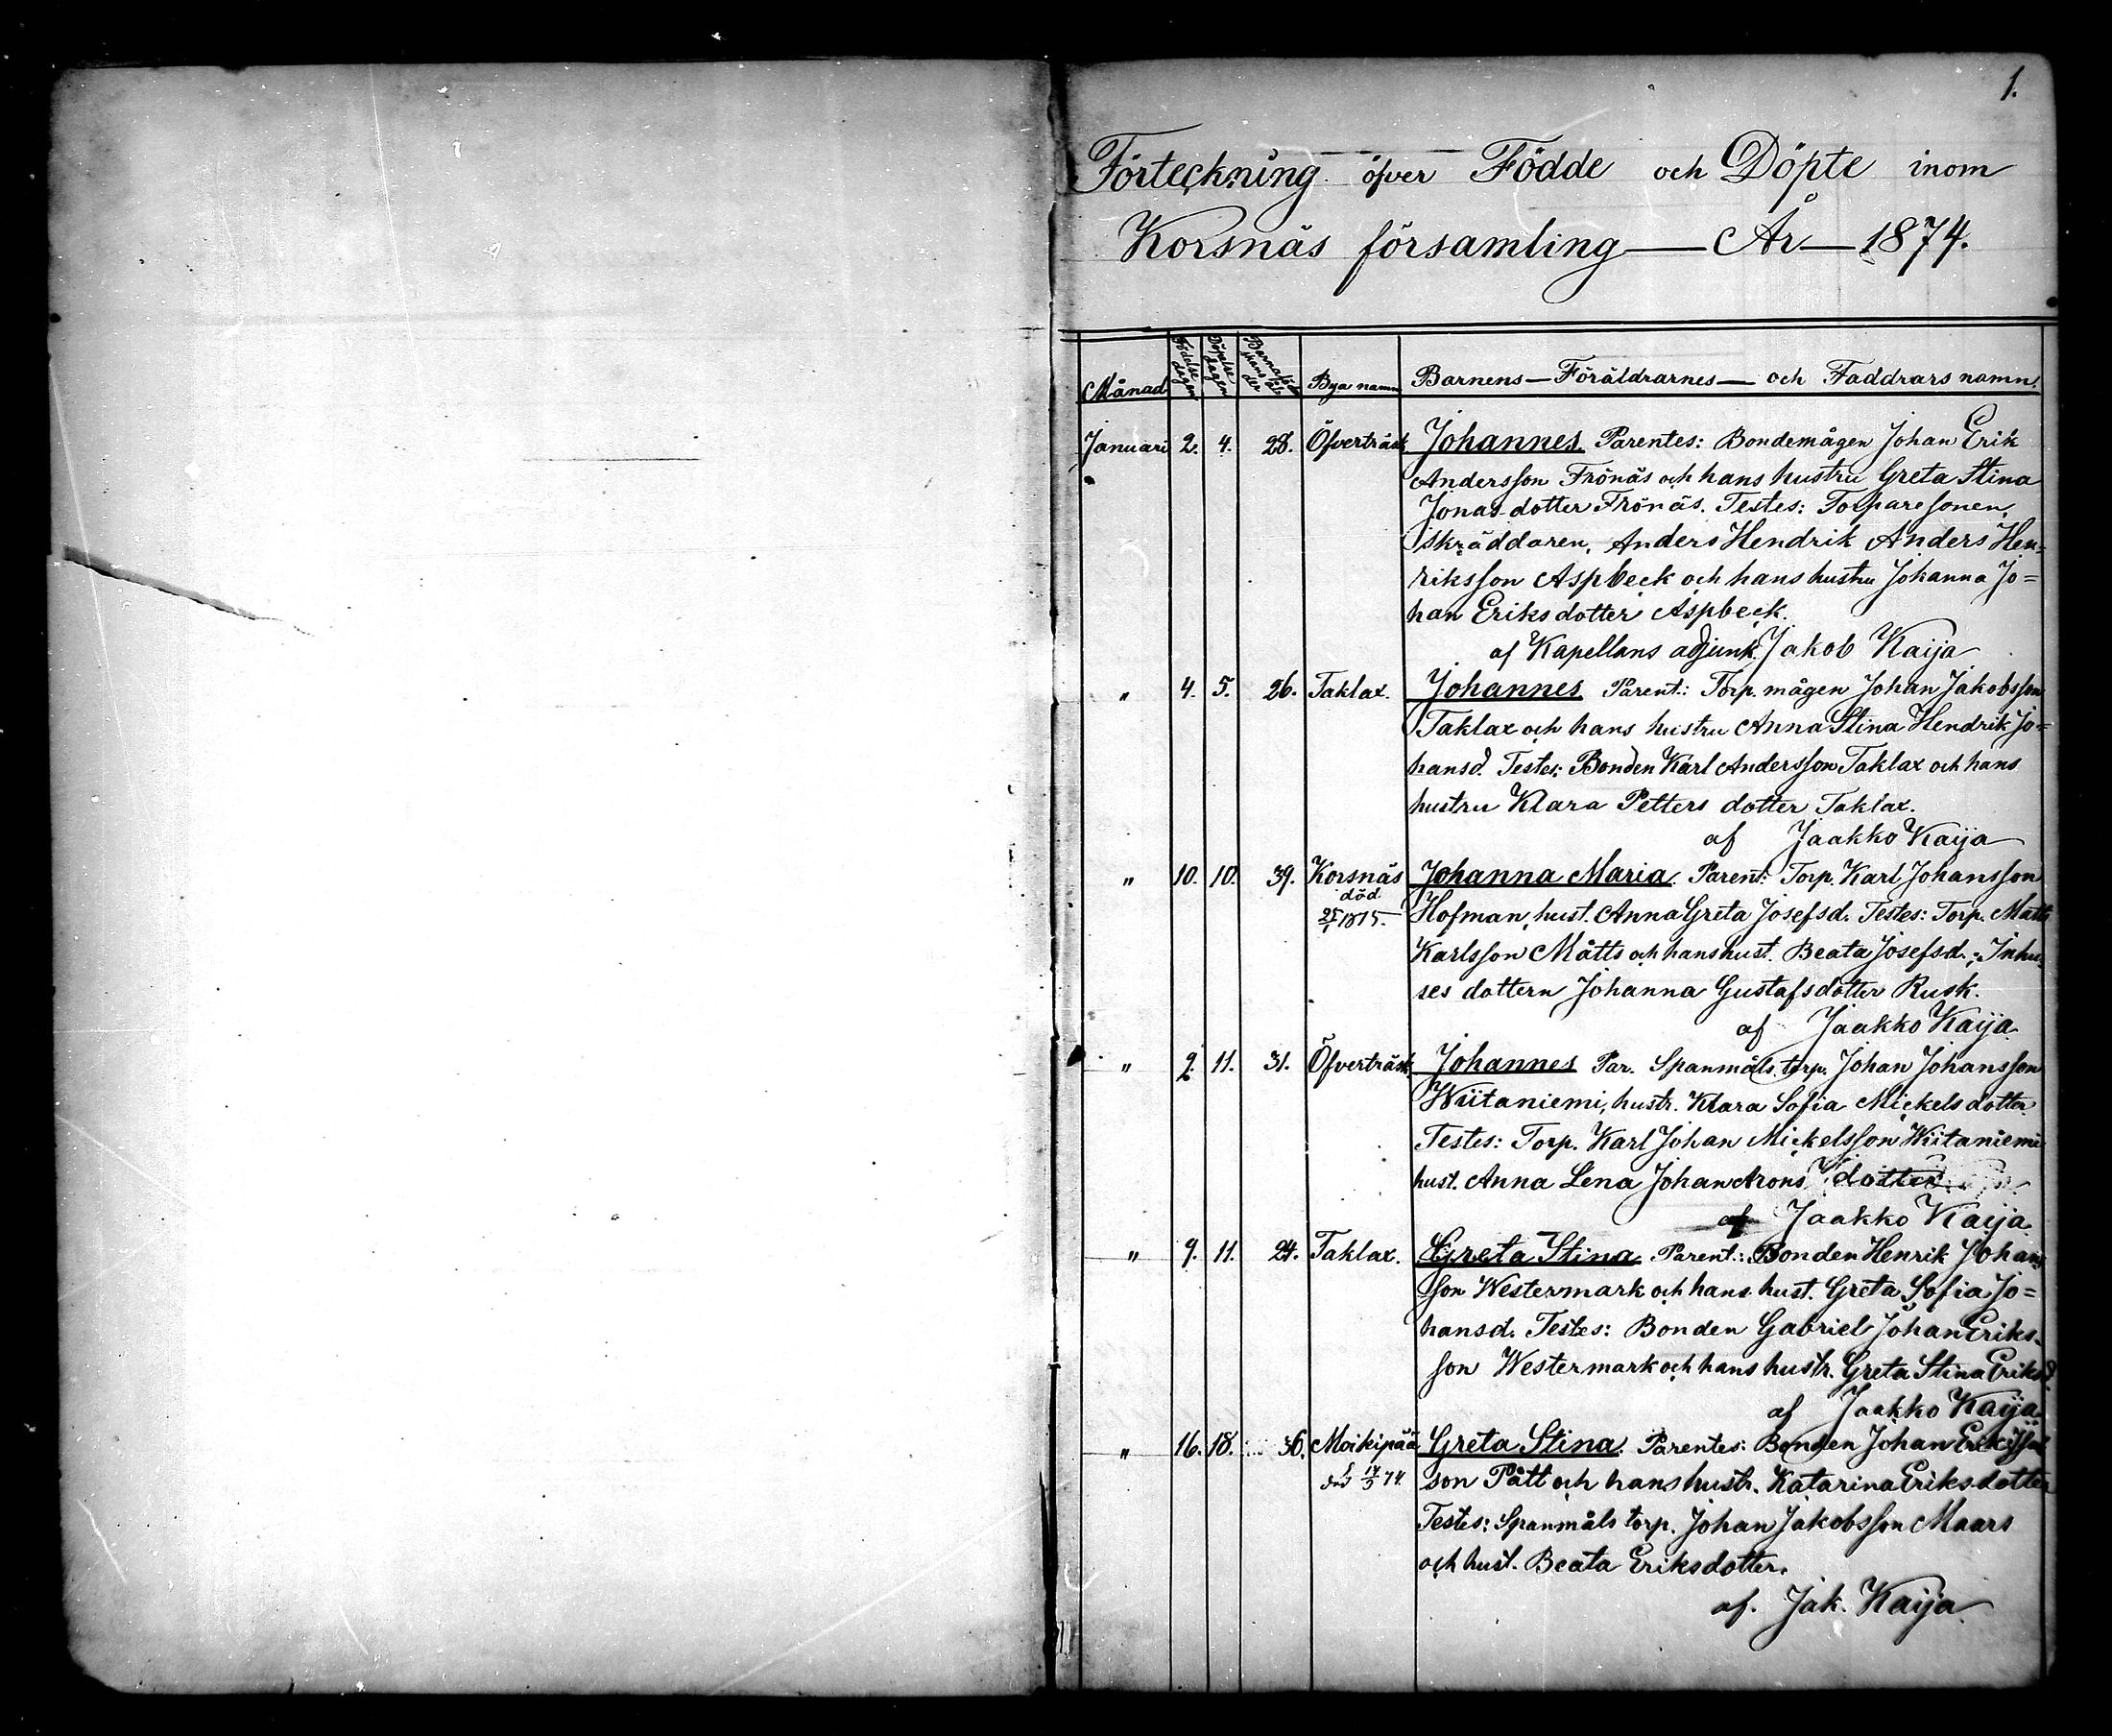 1.
Förteckning öfver Födde och Döpte inom
Korsnäs församling — År — 1874.
Månad Födelse dagen Döpelse dagen Barnaföderskans ålder Bya namn Barnens — Föräldrarnes — och Faddrars namn.
Januari 2. 4. 28. Öfverträsk Johannes. Parentes: Bondemågen Johan Erik
Andersson Frönäs och hans hustru Greta Stina
Jonas dotter Frönäs. Testes: Torparesonen,
skräddaren, Anders Hendrik Anders Hen-
riksson Aspbeck och hans hustru Johanna Jo=
han Eriksdotter Aspbeck.
af Kapellans adjunk. Jakob Kaija
" 4. 5. 26. Taklax. Johannes Parent.: Torp. mågen Johan Jakobsson
Taklax och hans hustru Anna Stina Hendrik Jo=
hansd. Testes: Bonden Karl Andersson Taklax och hans
hustru Klara Petters dotter Taklax.
af Jaakko Kaija
" 10. 10. 39. Korsnäs Johanna Maria. Parent: Torp. Karl Johansson
död 1875. Hofman, hust. Anna Greta Josefsd. Testes: Torp. Matts
Karlsson Måtts och hans hust. Beata Josefsd.; Inhy-
ses dottern Johanna Gustafsdotter Rusk.
af Jaakko Kaija
" 2. 11. 31. Öfverträsk. Johannes Par. Spanmåls torp. Johan Johansson
Wiitaniemi, hustr. Klara Sofia Mickelsdotter
Testes: Torp. Karl Johan Mickelsson Wiitaniemi
hust. Anna Lena Johan Arons dotter
af Jaakko Kaija.
" 9. 11. 24. Taklax. Greta Stina. Parent.: Bonden Henrik Johans
son Westermark och hans hust. Greta Sofia Jo=
hansd. Testes: Bonden Gabriel Johan Eriks-
son Westermark och hans hustr. Greta Stina Eriksd.
af Jaakko Kaija
" 16. 18. 36. Moikipää Greta Stina. Parentes: Bonden Johan Eriksson
död 17/3 74. son Pått och hans hustr. Katarina Eriksdotter
Testes: Spanmåls torp. Johan Jakobsson Maars
och hust. Beata Eriksdotter.
af. Jak. Kaija